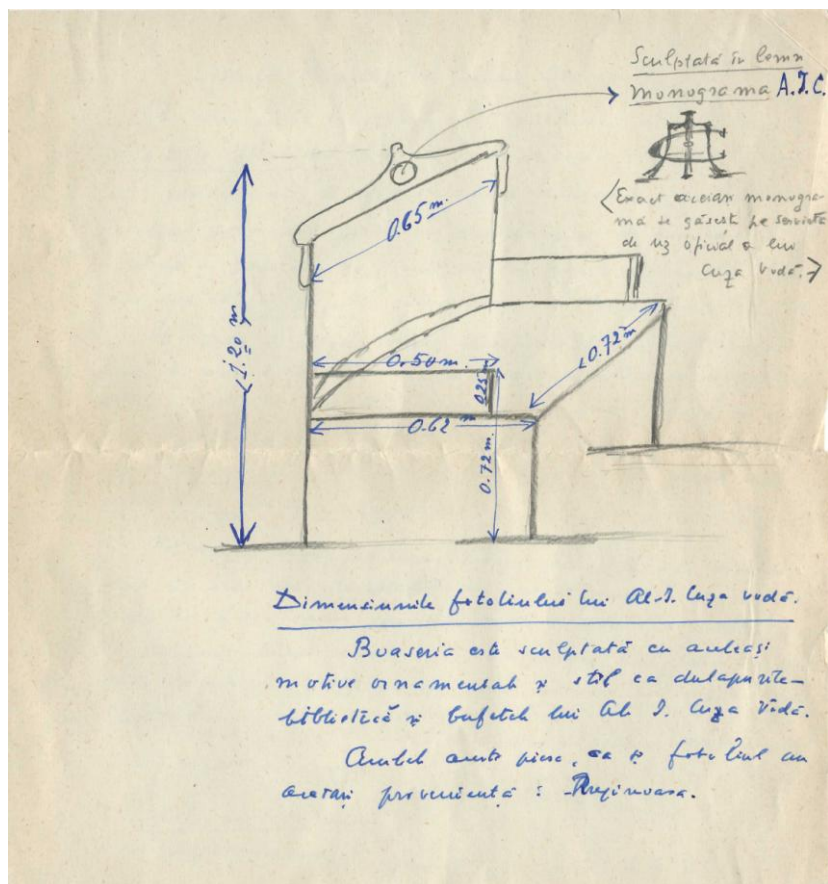 Sculptată în lemn
Monograma A.I.C.
<Exact aceeași monogra-
mă se găsește pe servieta
de uz oficial a lui
Cuza Vodă.>
0.65 m.
1.20 m
0.50 m.
0.72 m.
0.25 m
0.62 m
0.72 m.
Dimensiunile fotoliului lui Al. I. Cuza vodă.
Boaseria este sculptată cu aceleași
motive ornamentale și stil ca dulapurile-
bibliotecă și bufetele lui Al. I. Cuza Vodă.
aceste piese, ca și fotoliul au
aceeași proveniență : Ruginoasa.